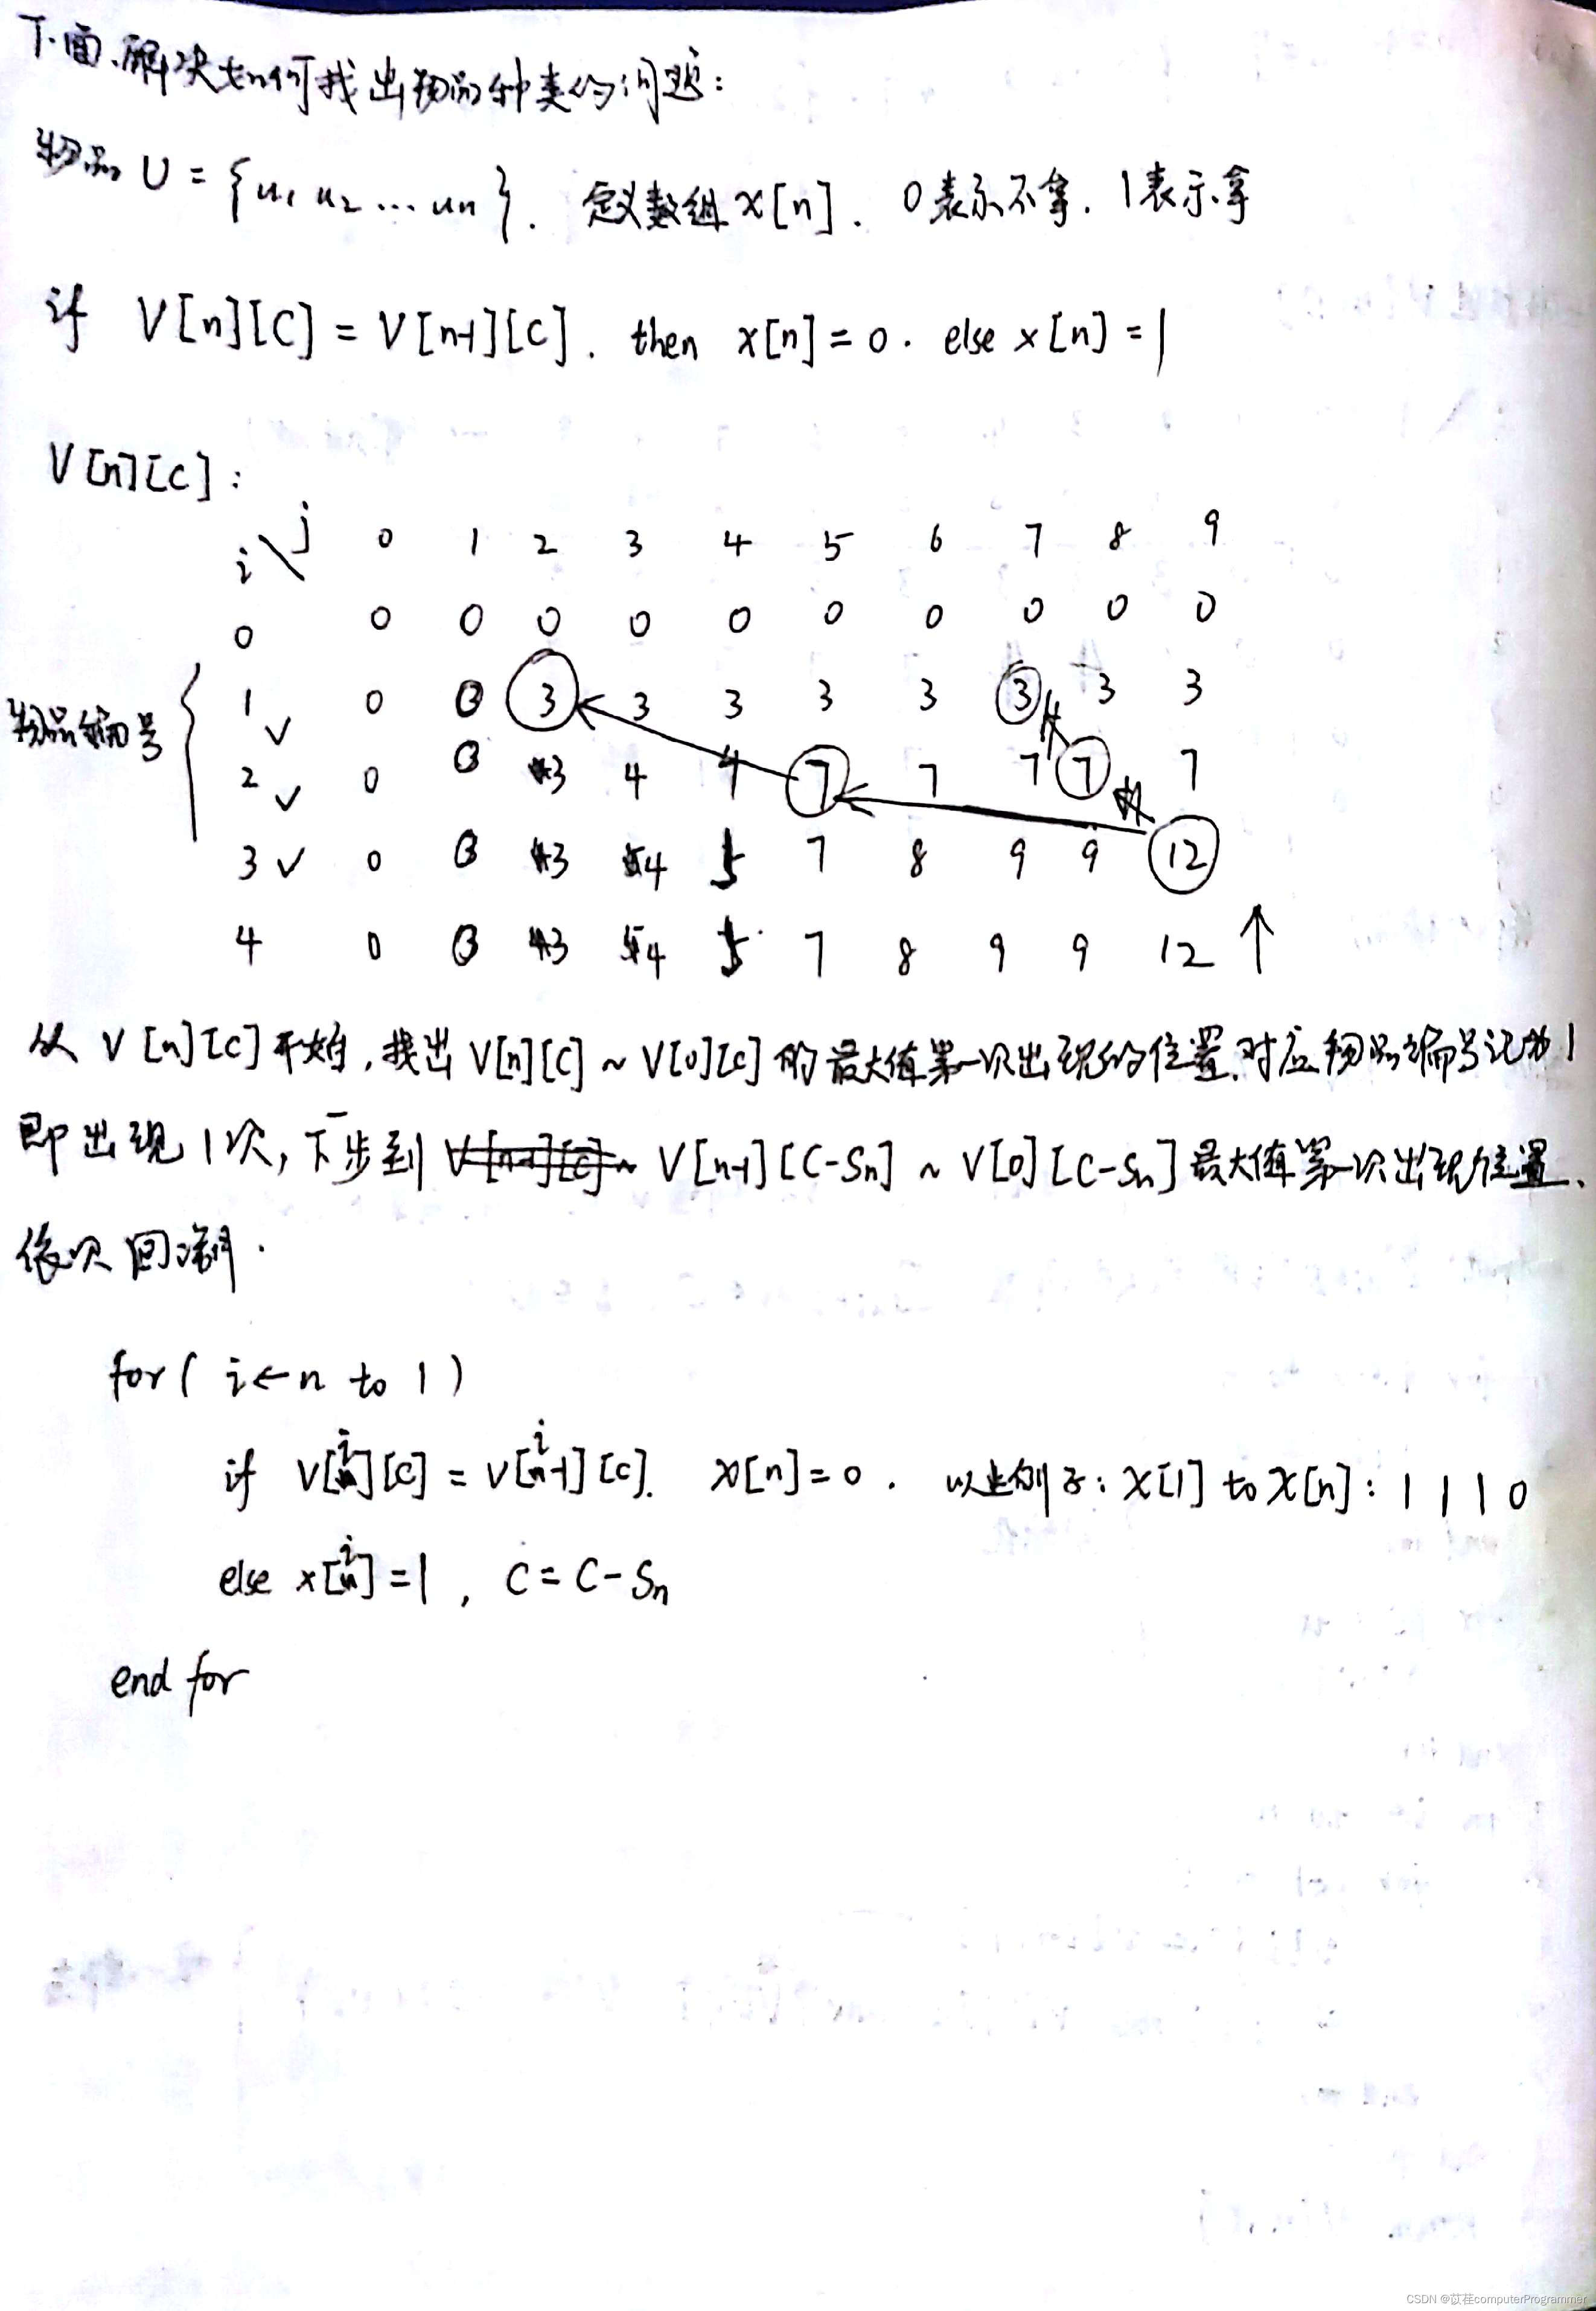 下面解决如何找出物品种类的问题:
物品 U = {u1 u2 ... un}. 定义数组 x[n]. 0表示不拿. 1表示拿
if V[n][C] = V[n-1][C]. then x[n]=0. else x[n]=1
V[n][C]:
i\j 0 1 2 3 4 5 6 7 8 9
0 0 0 0 0 0 0 0 0 0 0
1 ✓ 0 0 3 3 3 3 3 3 3 3
物品编号
2 ✓ 0 0 3 4 4 7 7 7 7 7
3 ✓ 0 0 3 4 5 7 8 9 9 12
4 0 0 3 4 5 7 8 9 9 12 ↑
从 V[n][C] 开始,找出 V[n][C] ~ V[0][C] 的最大值第一次出现的位置.对应物品编号记为1
即出现1次,下一步到 V[n-1][C-Sn] ~ V[0][C-Sn] 最大值第一次出现位置.
依次回溯.
for( i←n to 1)
if V[i][C] = V[i-1][C]. x[n]=0. 以上例子: x[1] to x[n]: 1 1 1 0
else x[i]=1, C=C-Sn
end for
CSDN @苡荏computerProgrammer